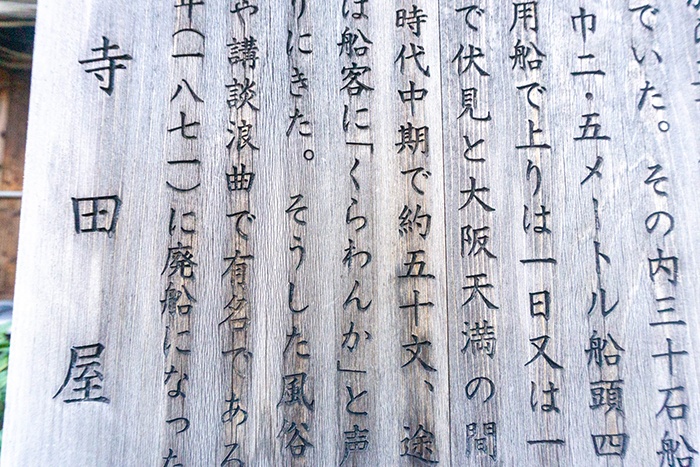 でいた。その内三十石船
巾二・五メートル船頭四
用船で上りは一日又は一
で伏見と大阪天満の間
時代中期で約五十文、途
は船客に「くらわんか」と声
りにきた。そうした風俗
や講談浪曲で有名である
年(一八七一)に廃船になった
寺田屋